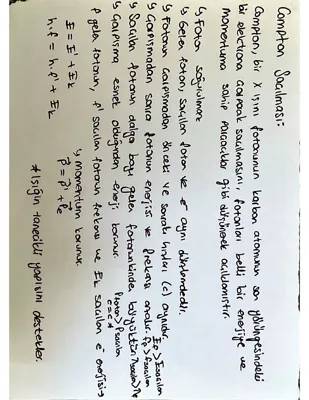 Compton Saçılması:
Compton, bir X ışını fotonunun karbon atomunun son yörüngesindeki
bir elektrona çarparak saçılmasını, fotonları belli bir enerjiye ve
momentuma sahip parçacıklar gibi düşünerek açıklamıştır.
↳ Foton soğurulmaz
↳ Gelen foton, saçılan foton ve e⁻ aynı düzlemdedir.
↳ Fotonun çarpışmadan önceki ve sonraki hızları (c) aynıdır.
↳ Çarpışmadan sonra fotonun enerjisi ve frekansı azalır. Egelen > Esaçılan
↳ Saçılan fotonun dalga boyu gelen fotonunkinden büyüktür.
↳ Çarpışma esnek olduğundan enerji korunur.
f gelen fotonun, f' saçılan fotonun frekansı ve Ek saçılan e⁻ enerjisi
E = E' + Ek
h.f = h.f' + Ek
↳ momentum korunur.
P = P' + Pe
* Işığın tanecikli yapısını destekler.